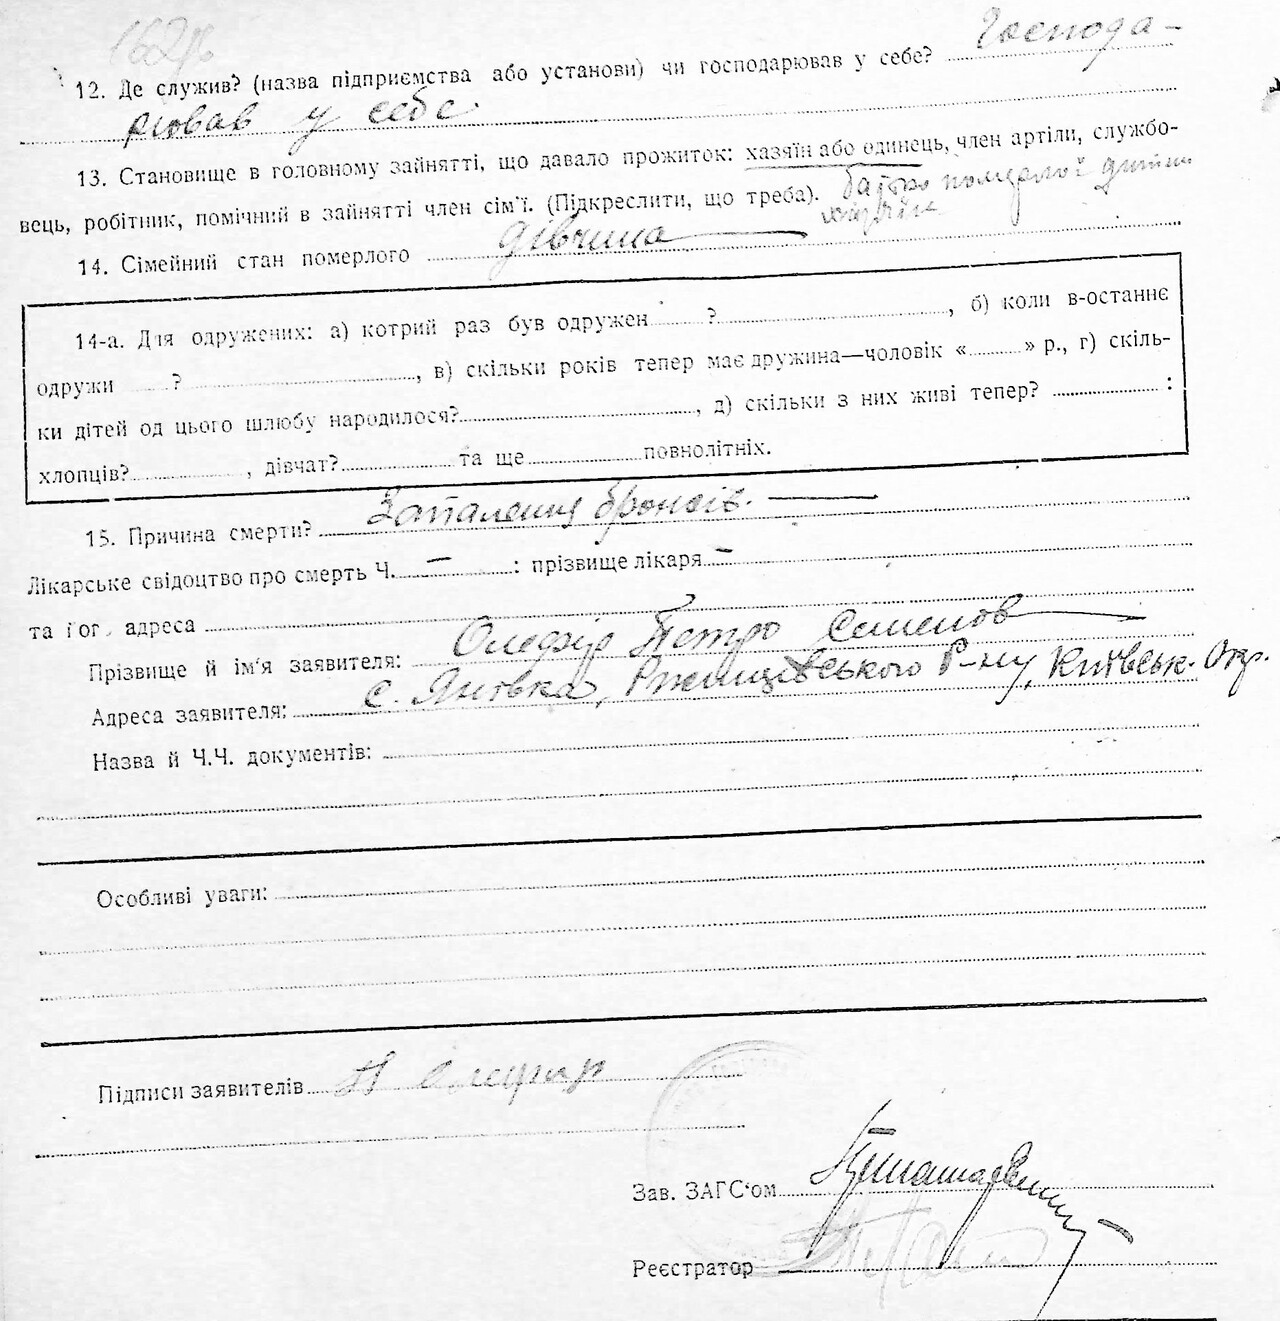 12. Де служив? (назва підприємства або установи) чи господарював у себе? Господа-
рював у себе.
13. Становище в головному зайнятті, що давало прожиток: хазяїн або одинець, член артіли, службо-
вець, робітник, помічний в зайнятті член сім'ї. (Підкреслити, що треба). батько померлої дитини
хазяїн
14. Сімейний стан померлого дівчина
14-а. Для одружених: а) котрий раз був одружен ? , б) коли в-останнє
одружи ? , в) скільки років тепер має дружина—чоловік « » р., г) скіль-
ки дітей од цього шлюбу народилося? , д) скільки з них живі тепер? :
хлопців? , дівчат? та ще повнолітніх.
15. Причина смерти? Запалення бронхів.
Лікарське свідоцтво про смерть Ч. — : прізвище лікаря —
та його адреса
Прізвище й ім'я заявителя: Олефір Петро Семенов
Адреса заявителя: с. Янівка, Ржищівського Р-ну, Київськ. Окр.
Назва й Ч.Ч. документів:
Особливі уваги:
Підписи заявителів П Олефір
Зав. ЗАГС'ом
Реєстратор